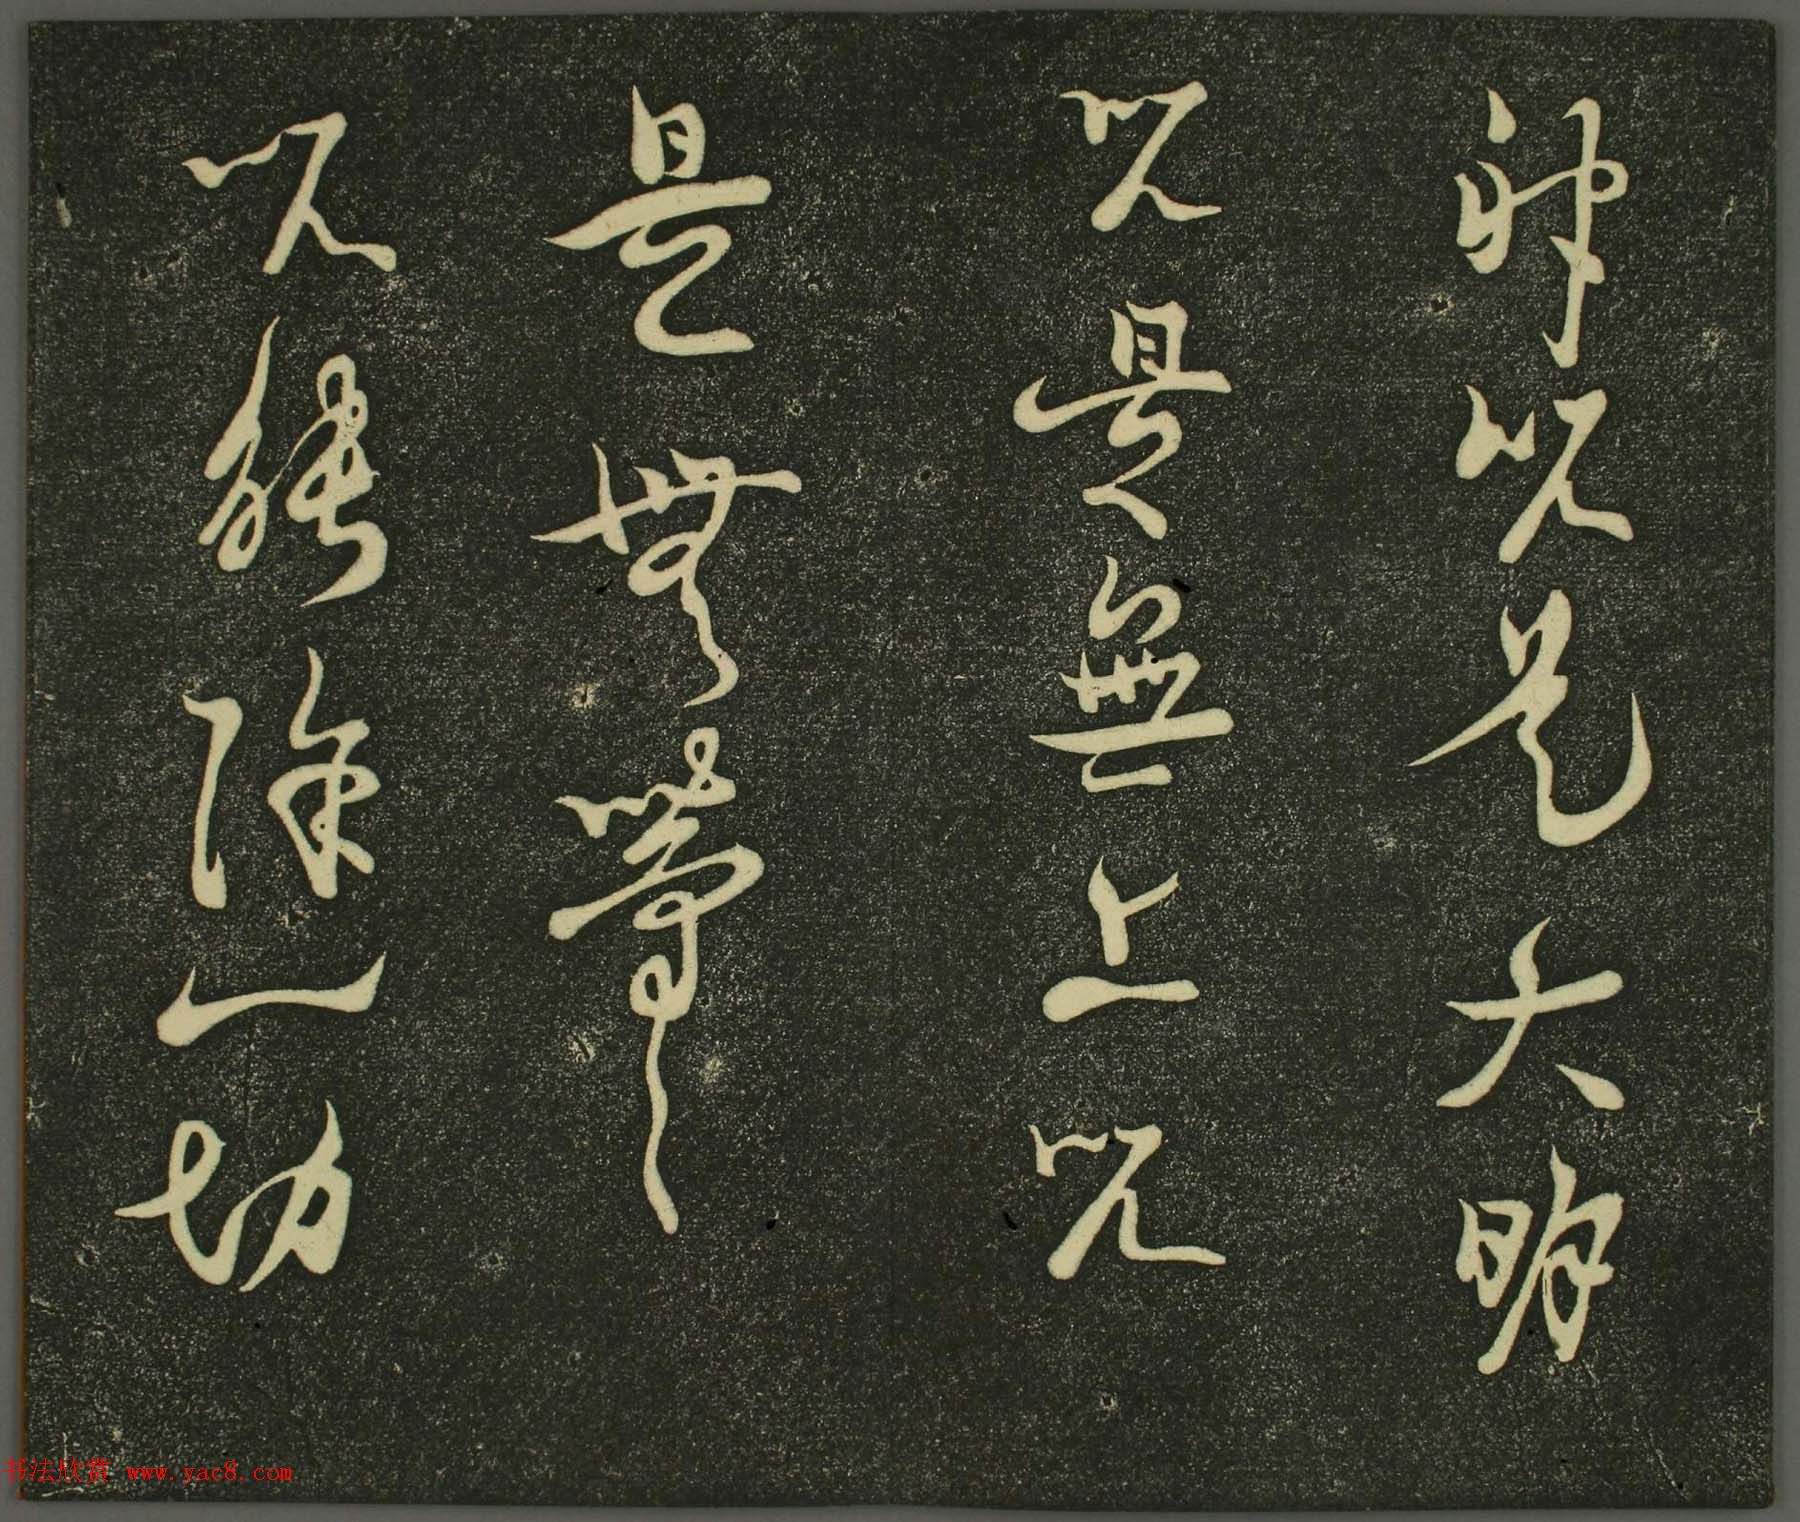 神咒是大明
咒是無上咒
是無等等
咒能除一切
书法欣赏 www.yac8.com